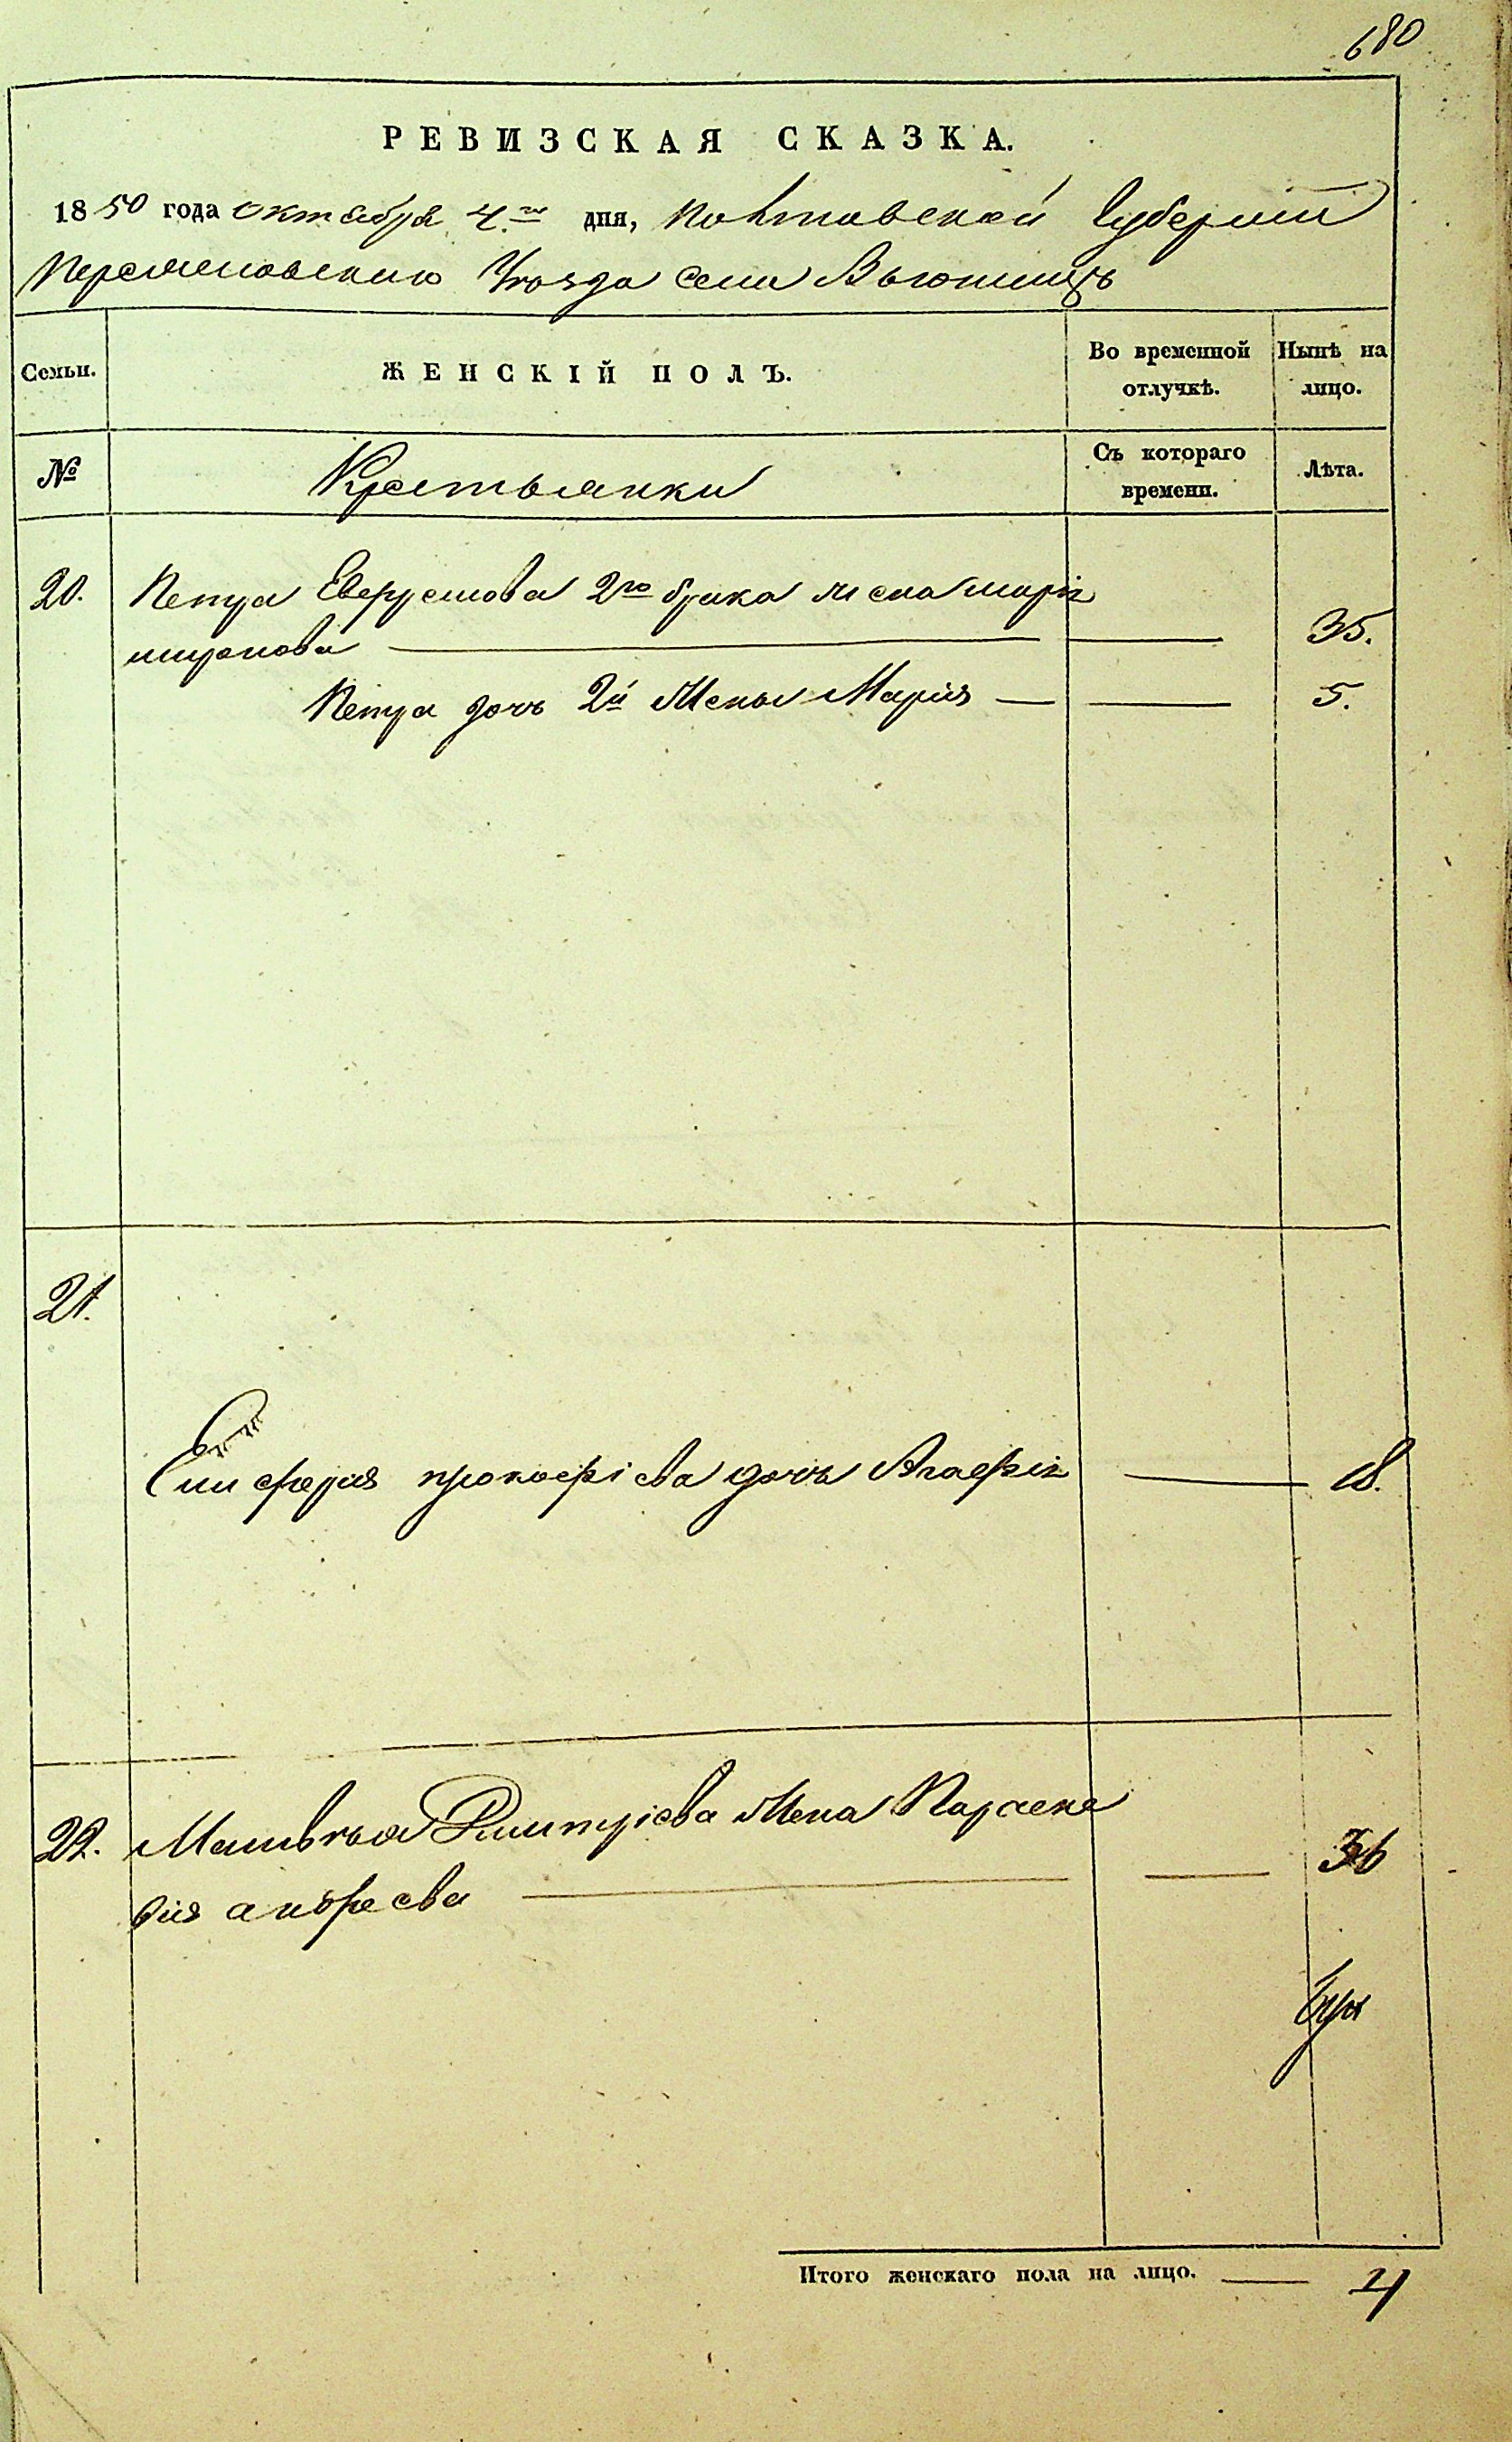 680
РЕВИЗСКАЯ СКАЗКА.
1850 года октября 4го дня, Полтавской Губернiи
Переяславскаго Уѣзда села Вьюнищъ
Семьи. ЖЕНСКIЙ ПОЛЪ. Во временной отлучкѣ. Нынѣ на лицо.
№ Крестьянки Съ котораго времени. Лѣта.
20. Петра Ефремова 2го брака жена марiя
миронова 35.
Петра дочь 2й Жены Марiя 5.
21.
прокофiева дочь Агафiя 18.
22. Матвѣя Дмитрiева Жена Параске
вiя андреева 36
Итого женскаго пола на лицо. 4